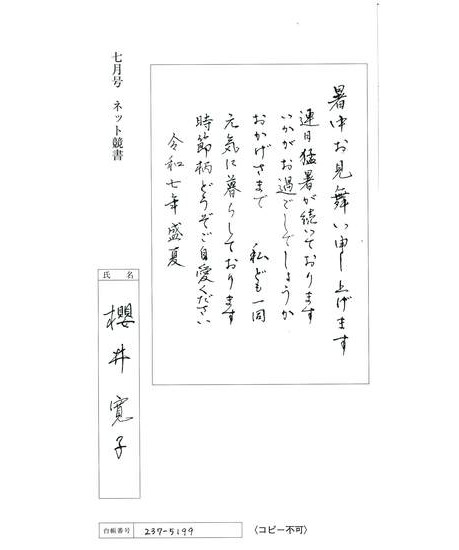 暑中お見舞い申し上げます
連日猛暑が続いております
いかがお過ごしでしょうか
おかげさまで　私ども一同
元気に暮らしております
時節柄どうぞご自愛ください
令和七年盛夏
七月号　ネット競書
氏名
櫻井寛子
台帳番号 237-5199
〈コピー不可〉